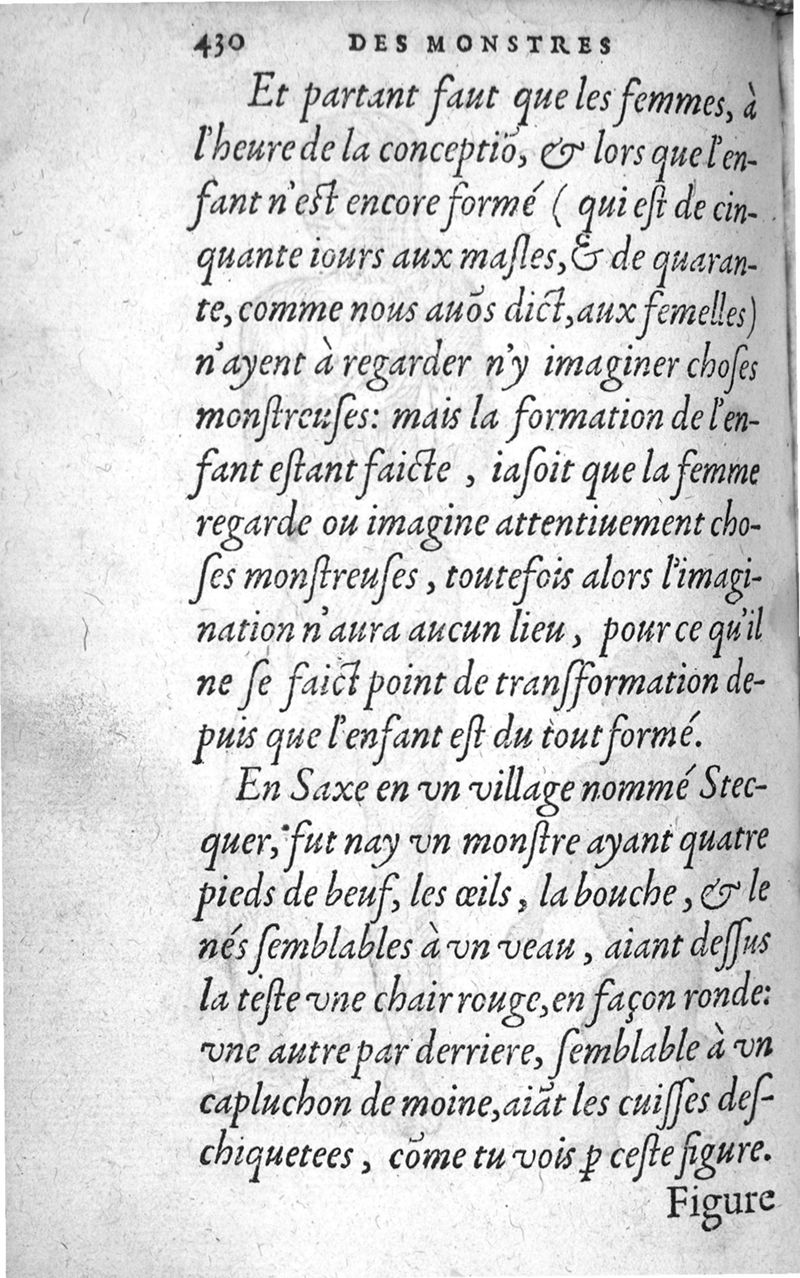 430 DES MONSTRES
Et partant faut que les femmes, à
l'heure de la conceptiõ, & lors que l'en-
fant n'eſt encore formé ( qui eſt de cin-
quante iours aux maſles, & de quaran-
te, comme nous auõs dict, aux femelles)
n'ayent à regarder n'y imaginer choſes
monſtreuſes: mais la formation de l'en-
fant eſtant faicte , iaſoit que la femme
regarde ou imagine attentiuement cho-
ſes monſtreuſes , toutefois alors l'imagi-
nation n'aura aucun lieu , pour ce qu'il
ne ſe faict point de tranſformation de-
puis que l'enfant eſt du tout formé.
En Saxe en vn village nommé Stec-
quer, fut nay vn monſtre ayant quatre
pieds de beuf, les œils , la bouche , & le
nés ſemblables à vn veau , aiant deſſus
la teſte vne chair rouge, en façon ronde:
vne autre par derriere, ſemblable à vn
capluchon de moine, aiãt les cuiſſes deſ-
chiquetees , cõme tu vois ꝑ ceſte figure.
Figure